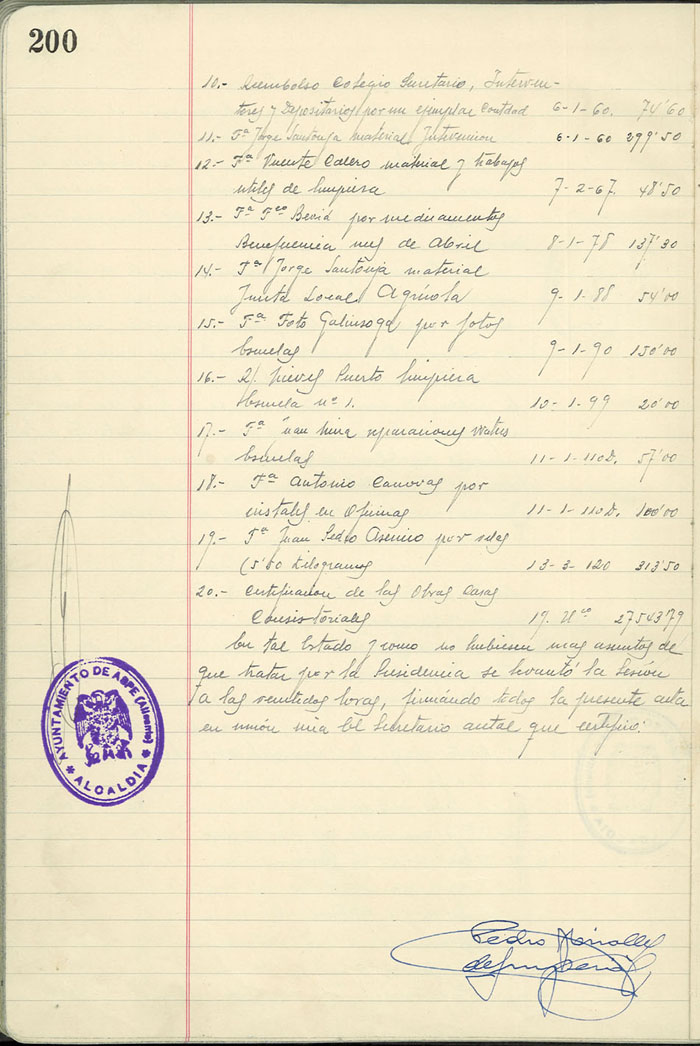 200
10.- Reembolso Colegio Secretario, Interven-
tores y Depositarios por un ejemplar Contdad 6-1-60. 74'60
11.- Fª Jorge Santonja material Intervencion 6-1-60 299'50
12.- Fª Vicente Calero material y trabajos
utiles de limpieza 7-2-67. 48'50
13.- Fª Fco por medicamentos
Beneficencia mes de Abril 8-1-78 137'30
14.- Fª Jorge Santonja material
Junta Local Agrícola 9-1-88 54'00
15.- Fª Foto Galinsoga por fotos
Escuelas 9-1-90 150'00
16.- Nieves Puerto limpieza
Escuela nº 1. 10-1-99 20'00
17.- Fª Juan Mira reparaciones Waters
Escuelas 11-1-110D. 57'00
18.- Fª Antonio Canovas por
cristales en Oficinas 11-1-110D. 100'00
19.- Fª Juan Pedro Asencio por
(5'50 Kilogramos 13-3-120 313'50
20.- Certificacion de las Obras Casas
Consistoriales 27543'79
En tal Estado y como no hubiesen mas asuntos de
que tratar por la Presidencia se levantó la Sesión
a las veintidos horas, firmándo todos la presente acta
en unión mia el Secretario actal que certifico.
AYUNTAMIENTO DE ASPE (Alicante)
* ALCALDIA *
Pedro